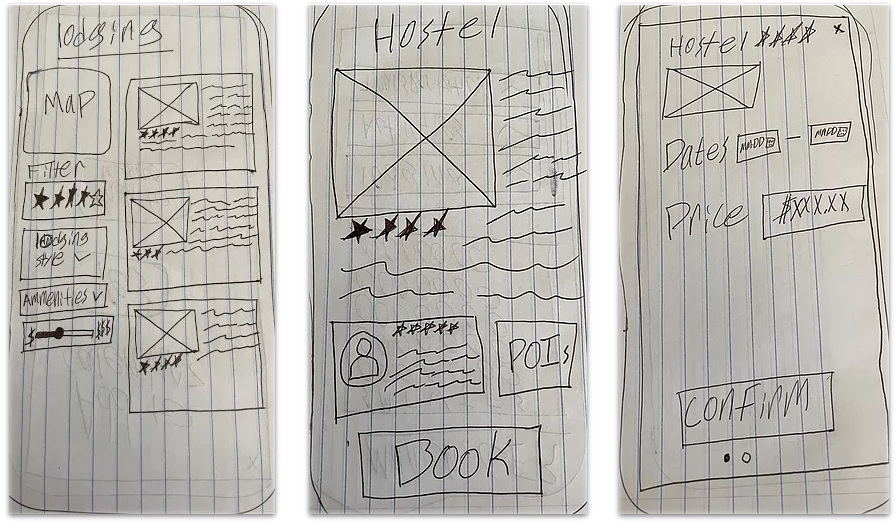 lodging
Map
Filter
lodging
style
Ammenities
$ $$$
Hostel
POIs
BOOK
Hostel
x
Dates MM/DD — MM/DD
Price #XXX.XX
confirm